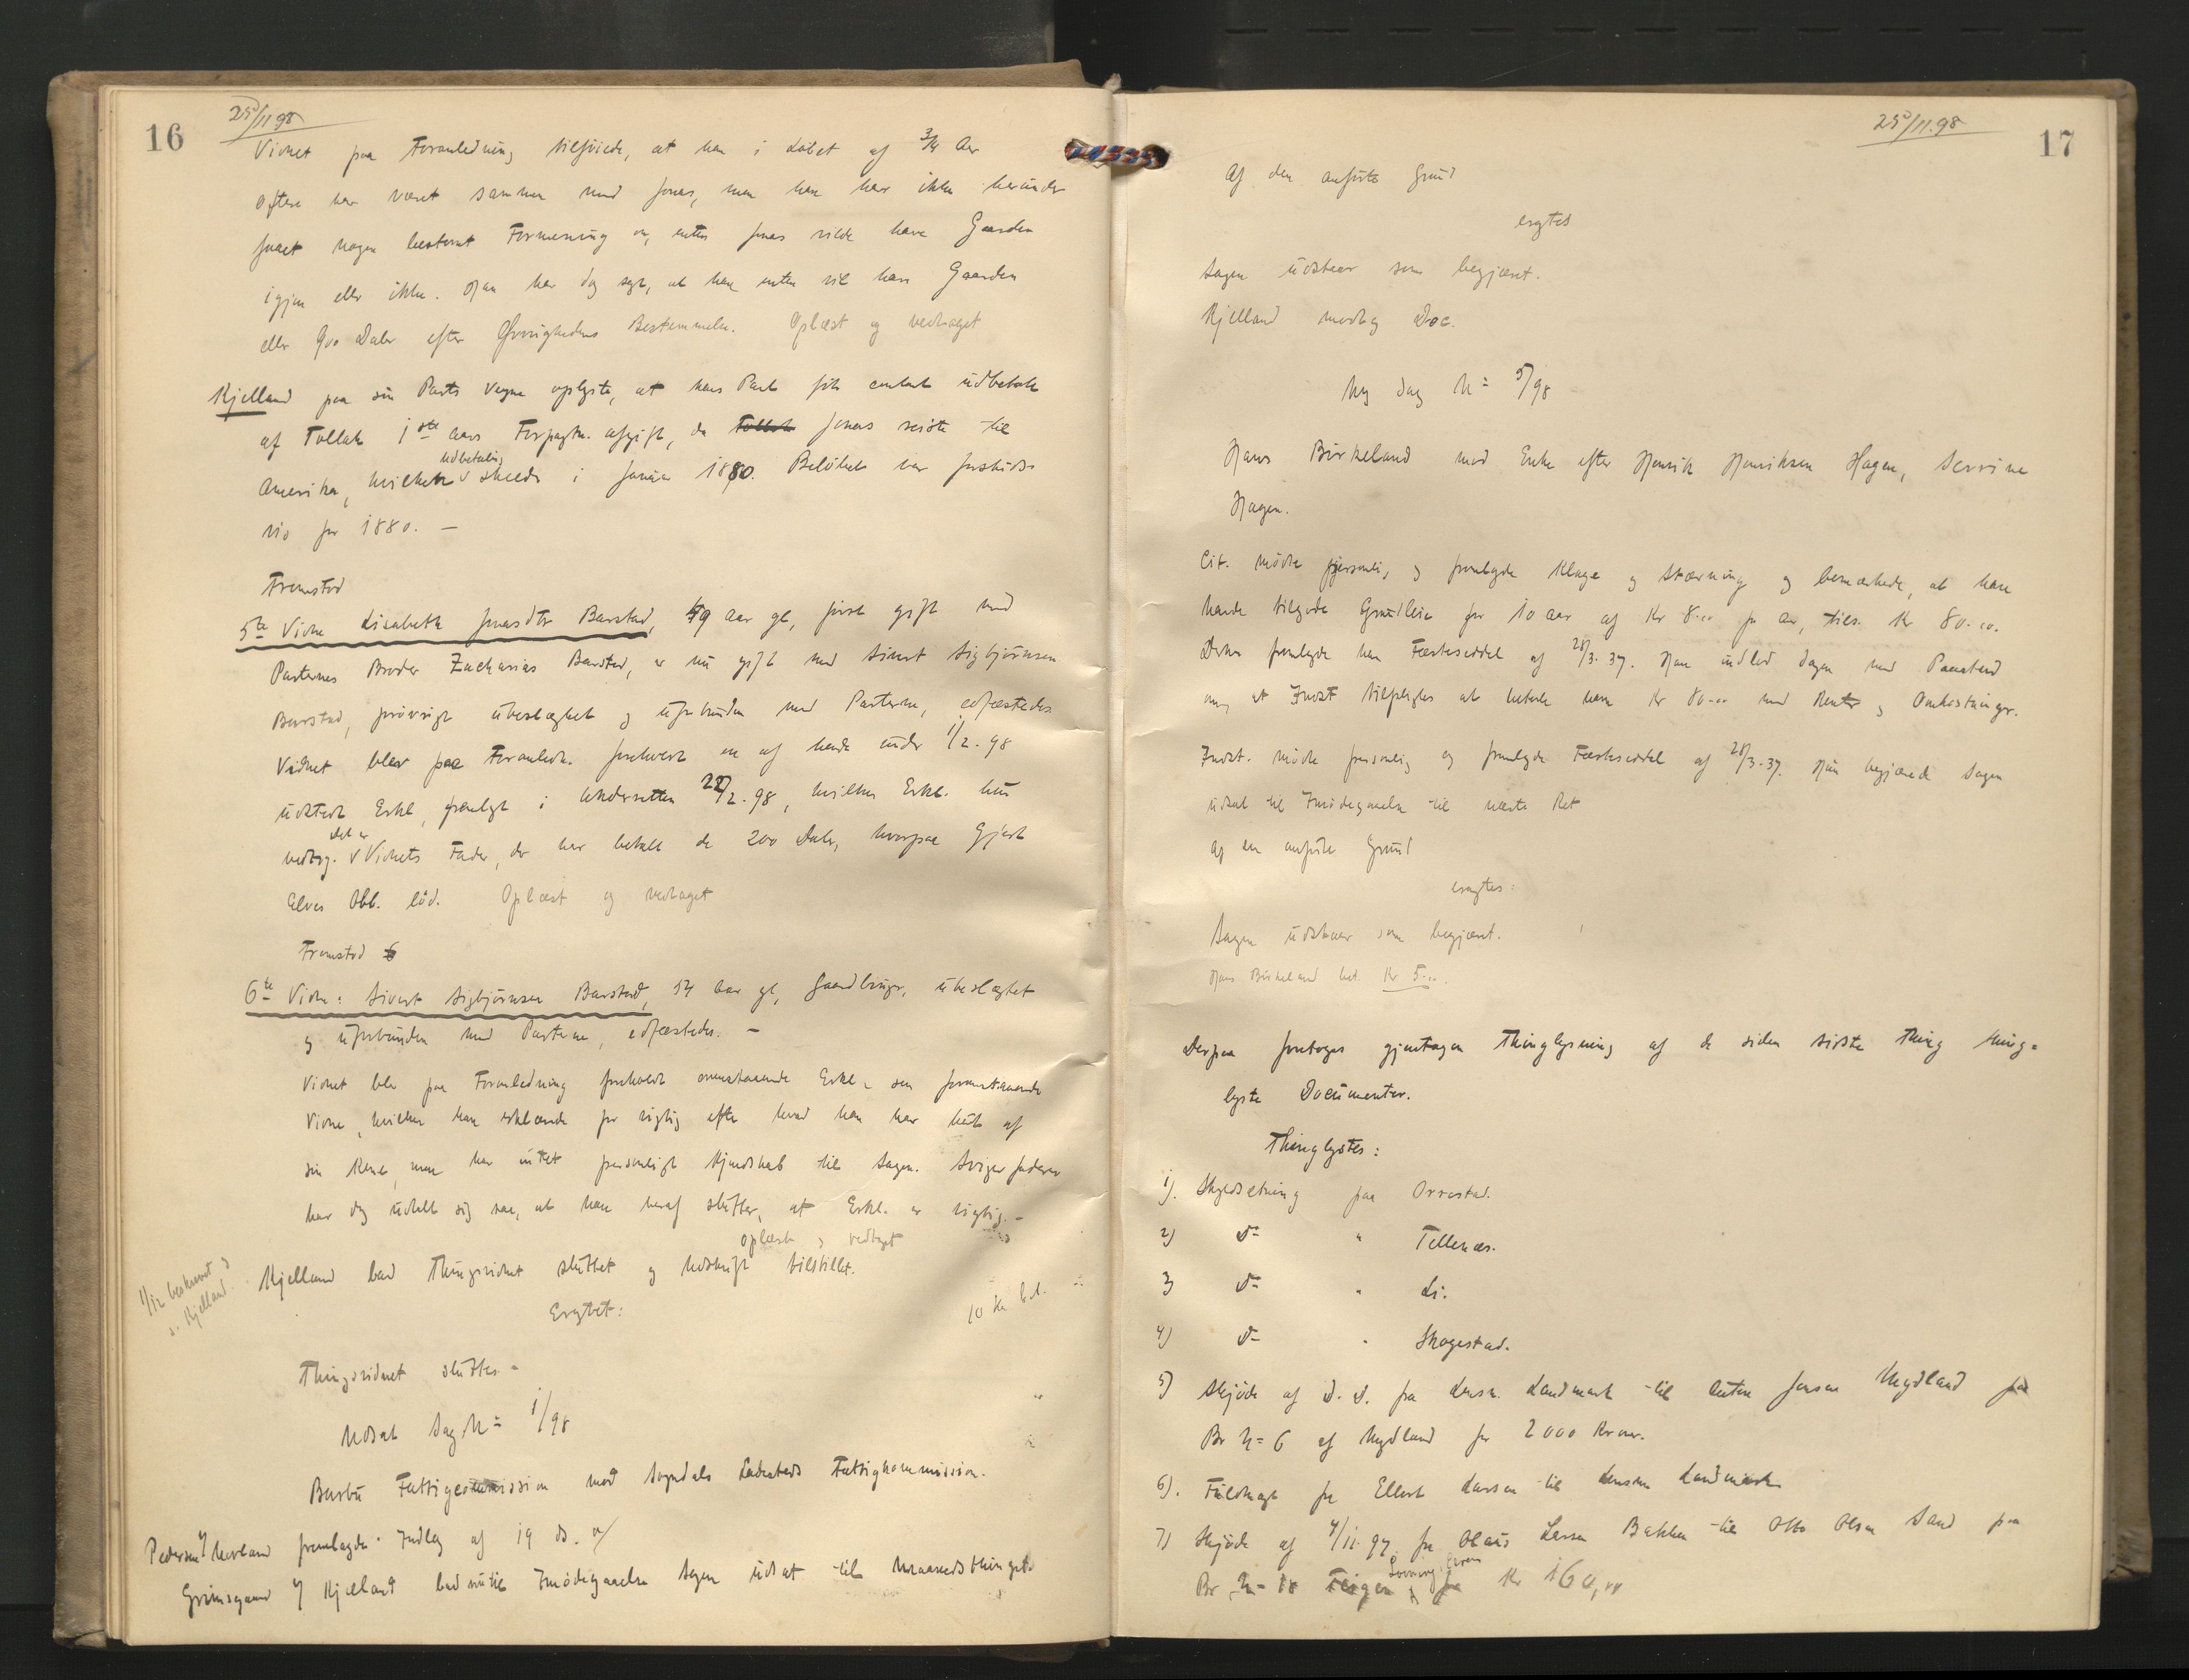 16
25/11 98
Vidnet paa Foranledning tilføiede, at han i Løbet af 3/4 Aar
oftere har været sammen med Jonas, men han har ikke herunder
faaet nogen bestemt Formening om, enten Jonas vilde have Gaarden
igjen eller ikke. Han har dog sagt, at han enten vil have Gaarden
eller 900 Daler efter Øvrighedens Bestemmelse. Oplæst og vedtaget
Kjelland paa sin Parts Vegne oplyste, at hans Part fik contant udbetalt
af Tollak 1ste Aars Forpagtn. afgift, da Jonas reiste til
Udbetaling
Amerika, hvilken skede i Januar 1880. Beløbet var forskuds-
vis for 1880. —
Fremstod
5te Vidne Lisabeth Jonasdtr Barstad, 49 Aar gl, først gift med
Parternes Broder Zacharias Barstad, er nu gift med Sivert Sigbjørnsen
Barstad, forøvrigt ubeslægtet og uforbunden med Parterne, edfæstedes
Vidnet blev paa Foranledn. foreholdt en af hende under 1/2 - 98
udstedt Erkl, fremlagt i Underretten 22/2 - 98, hvilken Erkl. hun
Det er
vedtog. Vidnets Fader, der har betalt de 200 Daler, hvorpaa Gjert
Elves Obl. lød. Oplæst og vedtaget
Fremstod
6te Vidne: Sivert Sigbjørnsen Barstad, 54 Aar gl, Gaardbruger, ubeslægtet
og uforbunden med Parterne, edfæstedes. —
Vidnet blev paa Foranledning foreholdt ovenstaaende Erkl. som foranstaaende
Vidne, hvilken han erklærede for rigtig efter hvad han har hørt af
sin Kone, men har intet personligt Kjendskab til Sagen. Svigerfaderen
har dog udtalt sig saa, at han heraf slutter, at Erkl. er rigtig. —
Oplæst og vedtaget
Kjelland bad Thingsvidnet sluttet og Udskrift tilstillet.
1/12 beskrevet og
s. Kjelland.
Eragtet:
10 Kr bet.
Thingsvidnet sluttes. -
Udsat Sag No 1/98
Barbu Fattigcommission mod Sogndals Ladesteds Fattigkommission.
Pedersen f/ Morland fremlagde Indlæg af 19 ds.
Grimsgaard f/ Kjelland bad nu til Imødegaaelse Sagen udsat til Maanedsthinget.
25/11.98
17
Af den anførte Grund
eragtes
Sagen udstaar som begjæret.
Kjelland modtog Doc.
Ny Sag No 5/98
Hans Birkeland mod Enke efter Henrik Henriksen Hagen, Serine
Hagen.
Cit. mødte personlig og fremlagde Klage og Stævning og bemærkede, at han
havde tilgode Grundleie for 10 Aar af Kr 8.00 pr Aar, tils. Kr 80.00.
Derom fremlagde han Fæsteseddel af 28/3. 37. Han indlod Sagen med Paastand
om, at Indst tilpligtes at betale ham Kr 80.00 med Renter og Omkostninger.
Indst. mødte personlig og fremlagde Fæsteseddel af 28/3-37. Hun begjærede Sagen
udsat til Imødegaaelse til næste Ret
Af den anførte Grund
eragtes:
Sagen udstaar som begjæret.
Hans Birkeland bet. Kr 5.00.
Derpaa foretoges gjentagen Thinglysning af de siden sidste Thing thing=
lyste Documenter.
Thinglystes:
1). Skyldsetning paa Orrestad.
2) do " Tellenæs.
3) do " Li.
4) do " Skogestad.
5) Skjøde af d. D. fra Lensm. Landmark til Anten Jensen Mydland paa
Br No 6 af Mydland for 2000 Kroner.
6). Fuldmagt fra Ellert Larsen til Lensm Landmark
7) Skjøde af 4/11. 97 fra Olaus Larsen Bakken til Otto Olsen Sand paa
Br. No 18 for Kr 160,00